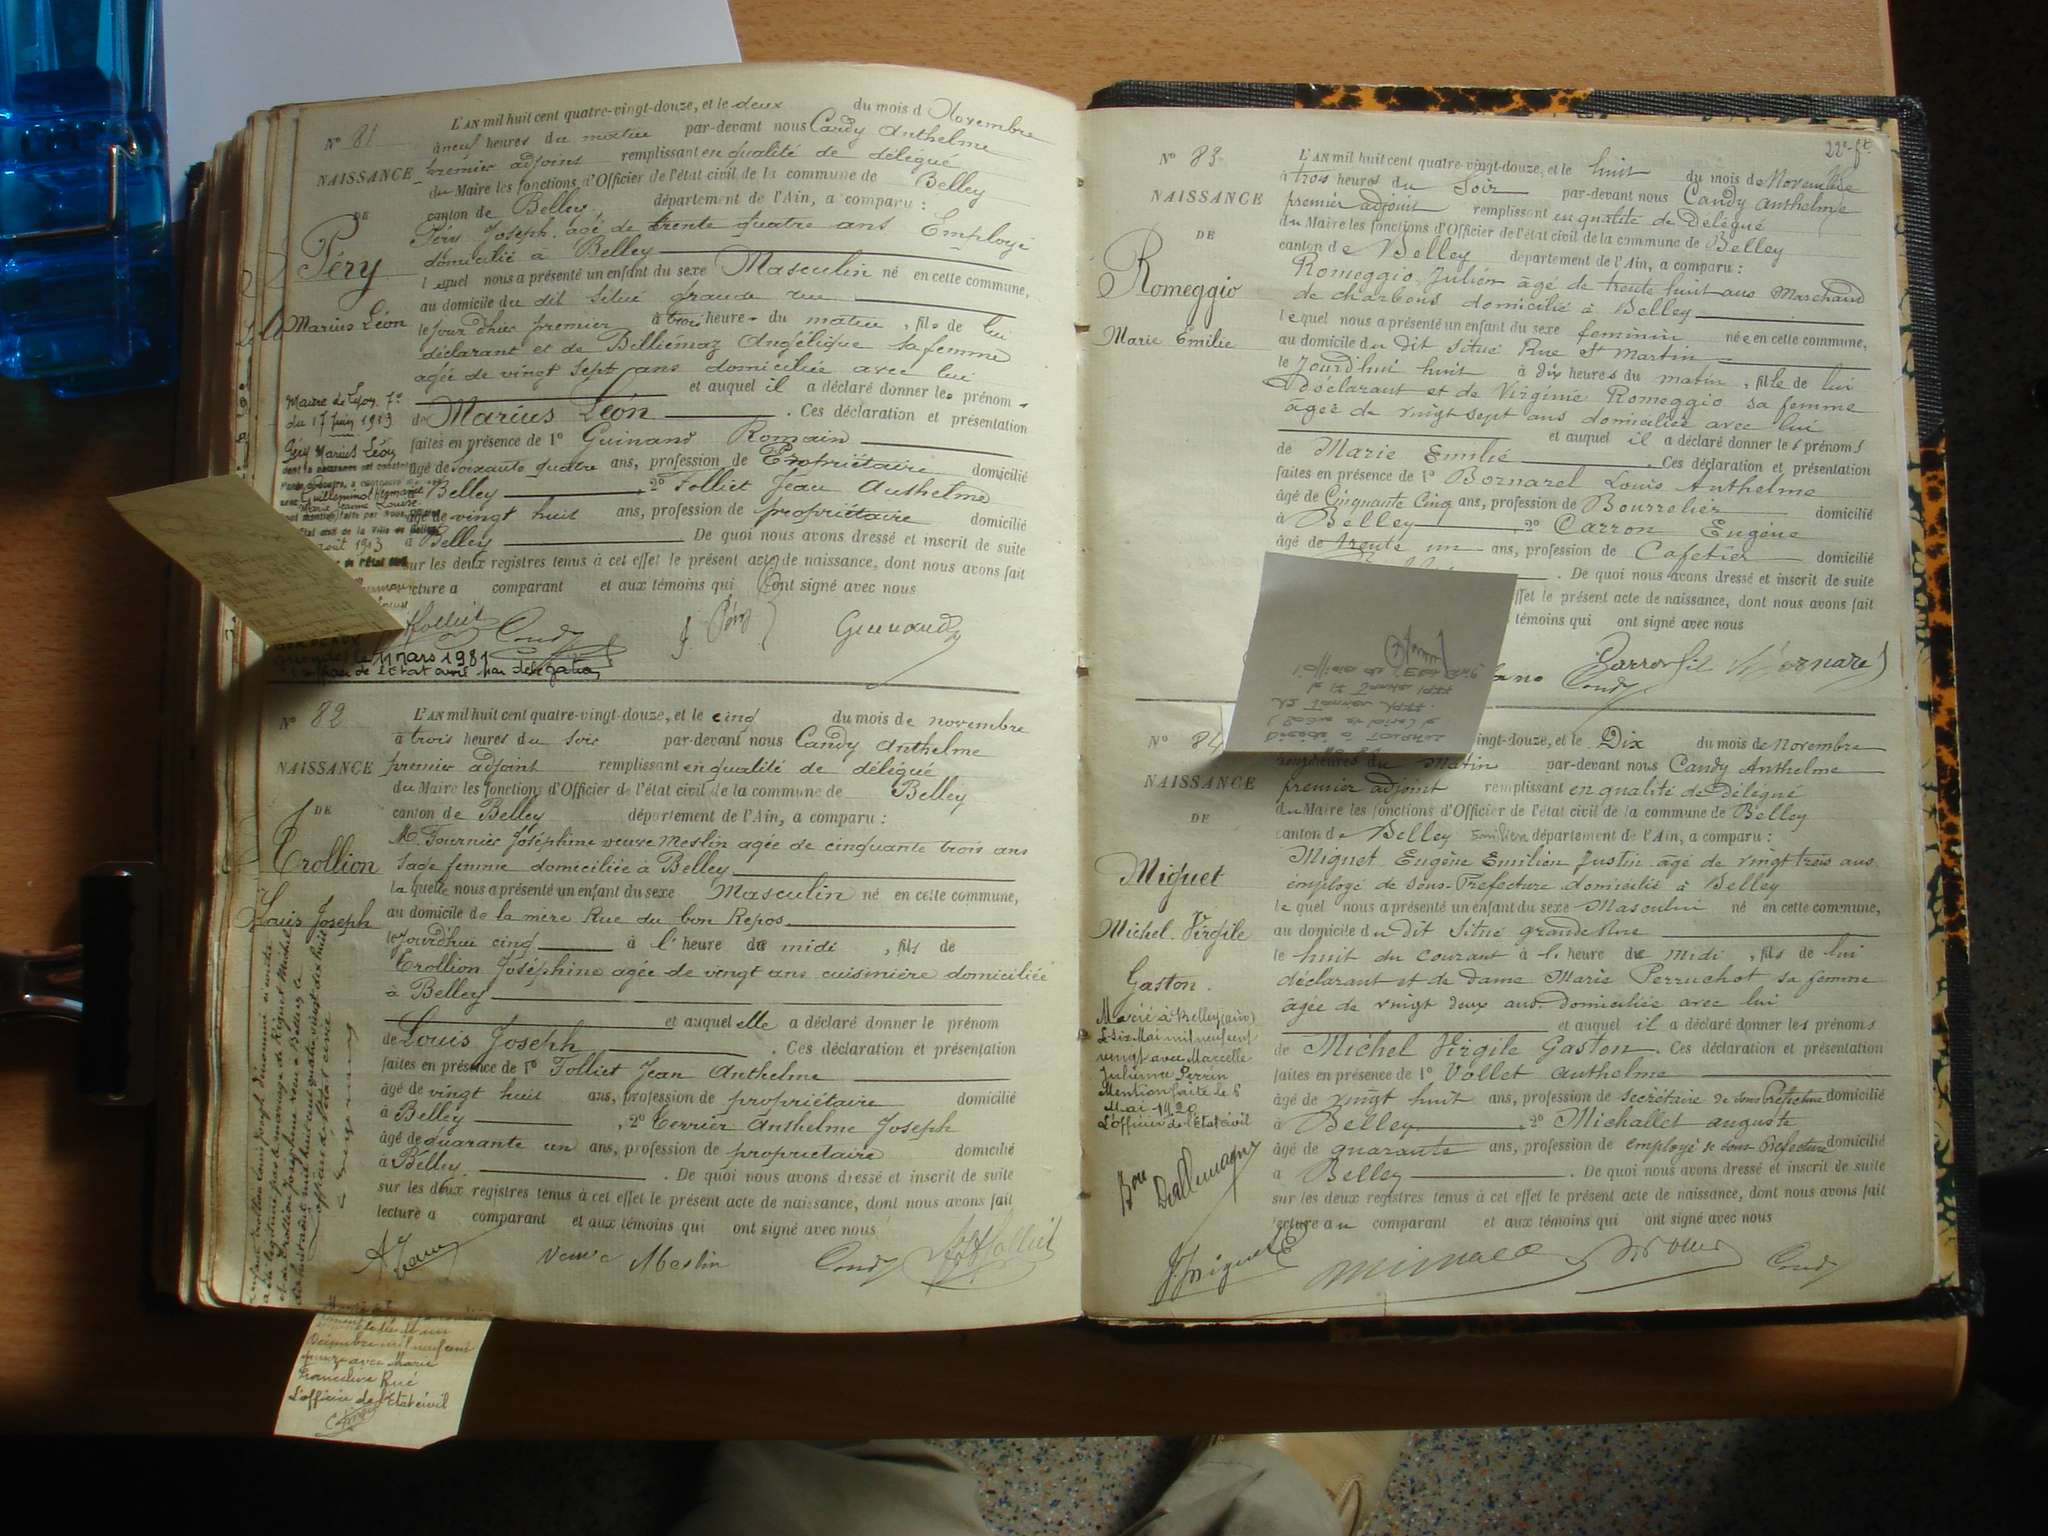 N° 81
NAISSANCE
DE
Péry
Marius Léon
L'AN mil huit cent quatre-vingt-douze, et le deux du mois d Novembre
à neuf heures du matin par-devant nous Candy Anthelme
premier adjoint remplissant en qualité de délégué
du Maire les fonctions d'Officier de l'état civil de la commune de Belley
canton de Belley département de l'Ain, a comparu :
Péry Joseph agé de trente quatre ans Employé
domicilié à Belley
lequel nous a présenté un enfant du sexe Masculin né en cette commune,
au domicile du dit situé grande rue
le jourdhui premier à trois heures du matin, fils de lui
déclarant et de Billiémaz Angélique sa femme
agée de vingt sept ans domiciliée avec lui
et auquel il a déclaré donner les prénoms
de Marius Léon. Ces déclaration et présentation
faites en présence de 1° Guinand Romain
âgé de soixante quatre ans, profession de Propriétaire domicilié
à Belley, 2° Folliet Jean Anthelme
âgé de vingt huit ans, profession de propriétaire domicilié
à Belley De quoi nous avons dressé et inscrit de suite
sur les deux registres tenus à cet effet le présent acte de naissance, dont nous avons fait
lecture a comparant et aux témoins qui ont signé avec nous
Mairie de Lyon 7e
du 17 Juin 1913
Péry Marius Léon
Guillemin
Marie Jeanne Louise
août 1913
Folliet Candy J. Péry Guinand
le 11 mars 1981
de l'Etat civil par délégation
N° 82
NAISSANCE
DE
Trollion
Louis Joseph
L'AN mil huit cent quatre-vingt-douze, et le cinq du mois de novembre
à trois heures du soir par-devant nous Candy Anthelme
premier adjoint remplissant en qualité de délégué
du Maire les fonctions d'Officier de l'état civil de la commune de Belley
canton de Belley département de l'Ain, a comparu :
Me Fournier Joséphine veuve Meslin agée de cinquante trois ans
Sage femme domiciliée à Belley
laquelle nous a présenté un enfant du sexe Masculin né en cette commune,
au domicile de la mère Rue du bon Repos
le jourd'hui cinq à l' heure de midi, fils de
Trollion Joséphine agée de vingt ans cuisinière domiciliée
à Belley
et auquel elle a déclaré donner le prénom
de Louis Joseph. Ces déclaration et présentation
faites en présence de 1° Folliet Jean Anthelme
âgé de vingt huit ans, profession de propriétaire domicilié
à Belley, 2° Terrier Anthelme Joseph
âgé de quarante un ans, profession de propriétaire domicilié
à Belley. De quoi nous avons dressé et inscrit de suite
sur les deux registres tenus à cet effet le présent acte de naissance, dont nous avons fait
lecture a comparant et aux témoins qui ont signé avec nous
veuve Meslin Candy Folliet
Décembre mil neuf cent
quinze avec Marie
Franceline Rué
L'officier de l'Etat civil
22e ft
N° 83
NAISSANCE
DE
Romeggio
Marie Emilie
L'AN mil huit cent quatre-vingt-douze, et le huit du mois de Novembre
à trois heures du Soir par-devant nous Candy Anthelme
premier adjoint remplissant en qualité de Délégué
du Maire les fonctions d'Officier de l'état civil de la commune de Belley
canton de Belley département de l'Ain, a comparu :
Romeggio Julien âgé de trente huit ans Marchand
de charbons domicilié à Belley
lequel nous a présenté un enfant du sexe feminin née en cette commune,
au domicile du dit situé Rue St Martin
le Jourdhui huit à dix heures du matin, fille de lui
déclarant et de Virginie Romeggio sa femme
âgée de vingt sept ans domiciliée avec lui
et auquel il a déclaré donner les prénoms
de Marie Emilie. Ces déclaration et présentation
faites en présence de 1° Bornarel Louis Anthelme
âgé de Cinquante Cinq ans, profession de Bourrelier domicilié
à Belley 2° Carron Eugène
âgé de trente un ans, profession de Cafetier domicilié
. De quoi nous avons dressé et inscrit de suite
effet le présent acte de naissance, dont nous avons fait
témoins qui ont signé avec nous
Bornarel
Candy
N° 84
NAISSANCE
DE
Miguet
Michel Virgile
Gaston.
vingt-douze, et le Dix du mois de novembre
heures du Matin par-devant nous Candy Anthelme
premier adjoint remplissant en qualité de délégué
du Maire les fonctions d'Officier de l'état civil de la commune de Belley
canton de Belley département de l'Ain, a comparu :
Miguet Eugène Emilien Justin agé de vingt trois ans
employé de Sous-Préfecture domicilié à Belley
lequel nous a présenté un enfant du sexe Masculin né en cette commune,
au domicile du dit Situé grande Rue
le huit du courant à l' heure de midi, fils de lui
déclarant et de Dame Marie Perruchot sa femme
âgée de vingt deux ans domiciliée avec lui
et auquel il a déclaré donner les prénoms
de Michel Virgile Gaston. Ces déclaration et présentation
faites en présence de 1° Vollet Anthelme
âgé de vingt huit ans, profession de secrétaire de Sous Préfecture domicilié
à Belley 2° Michallet auguste
âgé de quarante ans, profession de employé de Sous Préfecture domicilié
à Belley. De quoi nous avons dressé et inscrit de suite
sur les deux registres tenus à cet effet le présent acte de naissance, dont nous avons fait
lecture au comparant et aux témoins qui ont signé avec nous
Marié à Belley (ain)
le six Mai mil neuf cent
vingt avec Marcelle
Julienne Perrin
Mention faite le 6
Mai 1920
L'officier de l'Etat civil
Dallemagne
Miguet E Candy